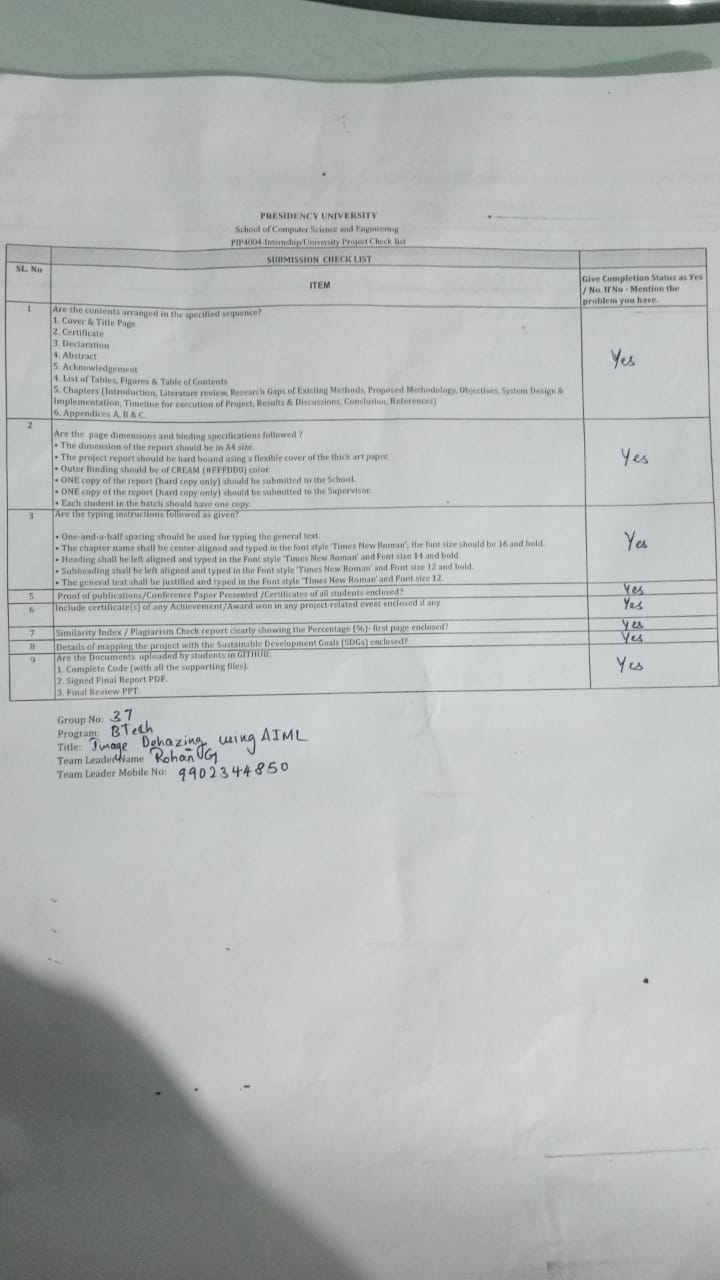 PRESIDENCY UNIVERSITY
School of Computer Science and Engineering
PIP4004-Internship/University Project Check list
SUBMISSION CHECK LIST
SL. No
ITEM
Give Completion Status as Yes
/ No. If No - Mention the
problem you have.
1
Are the contents arranged in the specified sequence?
1. Cover & Title Page
2. Certificate
3. Declaration
4. Abstract
5. Acknowledgement
4. List of Tables, Figures & Table of Contents
5. Chapters (Introduction, Literature review, Research Gaps of Existing Methods, Proposed Methodology, Objectives, System Design &
Implementation, Timeline for execution of Project, Results & Discussions, Conclusion, References)
6. Appendices A, B & C.
Yes
2
Are the page dimensions and binding specifications followed ?
• The dimension of the report should be in A4 size.
• The project report should be hard bound using a flexible cover of the thick art paper.
• Outer Binding should be of CREAM (#FFFDD0) color.
• ONE copy of the report (hard copy only) should be submitted to the School.
• ONE copy of the report (hard copy only) should be submitted to the Supervisor.
• Each student in the batch should have one copy.
Yes
3
Are the typing instructions followed as given?
• One-and-a-half spacing should be used for typing the general text.
• The chapter name shall be center-aligned and typed in the font style 'Times New Roman'; the font size should be 16 and bold.
• Heading shall be left aligned and typed in the Font style 'Times New Roman' and Font size 14 and bold.
• Subheading shall be left aligned and typed in the Font style 'Times New Roman' and Font size 12 and bold.
• The general text shall be justified and typed in the Font style 'Times New Roman' and Font size 12.
Yes
5 Proof of publications/Conference Paper Presented /Certificates of all students enclosed? Yes
6 Include certificate(s) of any Achievement/Award won in any project-related event enclosed if any Yes
7 Similarity Index / Plagiarism Check report clearly showing the Percentage (%)- first page enclosed? Yes
8 Details of mapping the project with the Sustainable Development Goals (SDGs) enclosed? Yes
9 Are the Documents uploaded by students in GITHUB.
1. Complete Code (with all the supporting files).
2. Signed Final Report PDF.
3. Final Review PPT.
Yes
Group No: 37
Program: BTech
Title: Image Dehazing using AIML
Team Leader Name Rohan G
Team Leader Mobile No: 9902344850